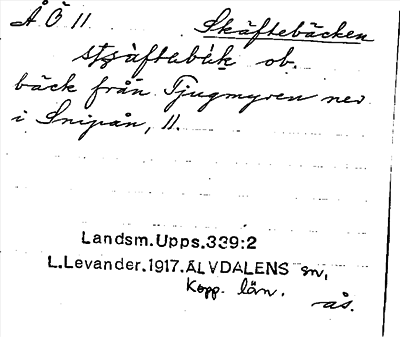 Å Ö 11. Skäftebäcken
ob.
bäck från Tjugmyren ner
i Snipån, 11.
Landsm.Upps.339:2
L.Levander.1917.ÄLVDALENS sn,
Kopp. län.
ås.